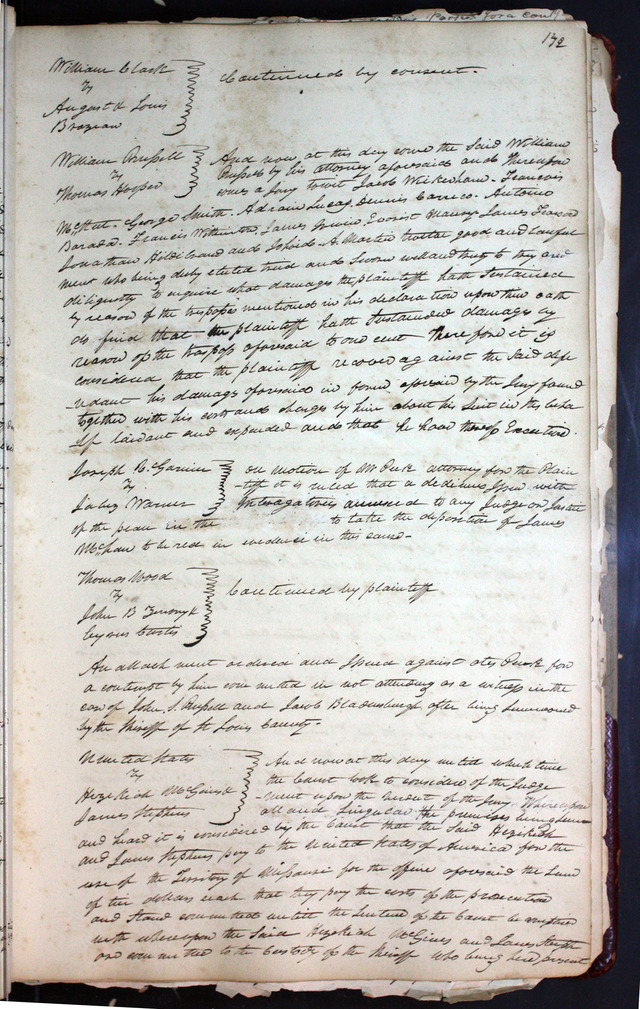 172
William Clark
vs
August & Louis
Brazeau
Continued by consent.
William Russell
vs
Thomas Hooper
And now at this day come the Said William
Russell by his attorney aforesaid and thereupon
comes a Jury to wit Jacob Wickerham. Francois
George Smith. Adrain Lucas, Dennis Carrico. Antoine
Barada. Francis James Irwin, James
Jonathan Hildebrand and A. Martin twelve good and lawful
men who being duly elected tried and Sworn well and truly to try and
diligently to inquire what damages the plaintiff hath Sustained
by reason of the trespass mentioned in his declaration upon their oath
do find that the plaintiff hath Sustained damages by
reason of the trespass aforesaid to one cent Therefore it is
considered that the plaintiff recover against the Said defe
ndant his damages aforesaid in form aforesaid by the Jury found
together with his costs and charges by him about his Suit in this beha
lf laid out and expended and that he have thereof Execution.
Joseph C. Garnier
vs
Warner
on motion of Mr attorney for the Plain
tiff it is ruled that a dedimus Issue with
Interogatories annexed to any Judge or Justice
of the peace in the to take the deposition of James
to be red in evidence in this cause -
Thomas Wood
vs
John B
Cyrus Curtis
Continued by plaintiff
An attachment ordered and Issued against for
a contempt by him committed in not attending as a witness in the
case of John S. Russell and Jacob Bladensburgh after being Summoned
by the Sheriff of St Louis County.
United States
vs
Hezekiah
James Stephens
And now at this day until which time
the Court took to consider of the Judge
ment upon the verdict of the Jury Whereupon
all and Singular the premises being seen
and heard it is considered by the Court that the Said Hezekiah
and James Stephens pay to the United States of America for the
use of the Territory of Missouri for the offence aforesaid the Sum
of ten dollars each that they pay the costs of the prosecution
and Stand committed until the Sentence of the Court be complied
with whereupon the Said Hezekiah and James
are committed to the Custody of the Sheriff who being here present